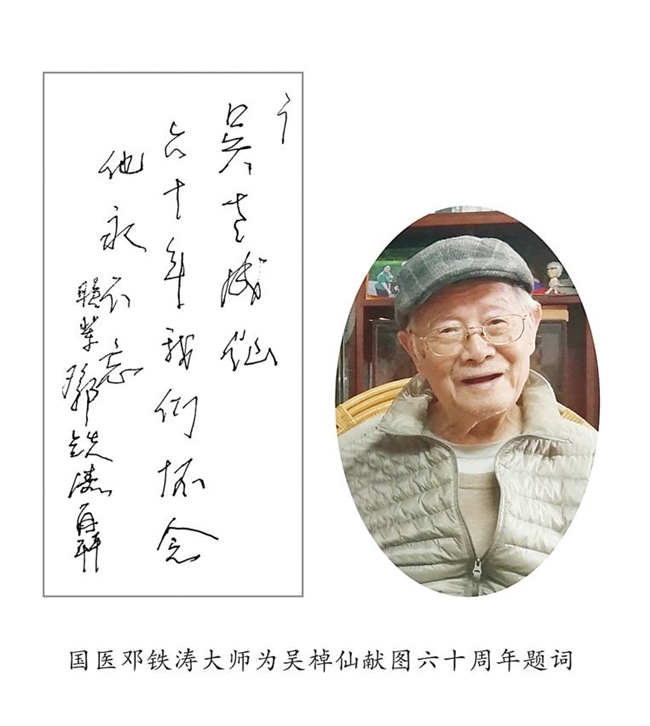 吴老成仙
六十年我们怀念
他永不忘
晚輩鄧铁涛
国医邓铁涛大师为吴棹仙献图六十周年题词